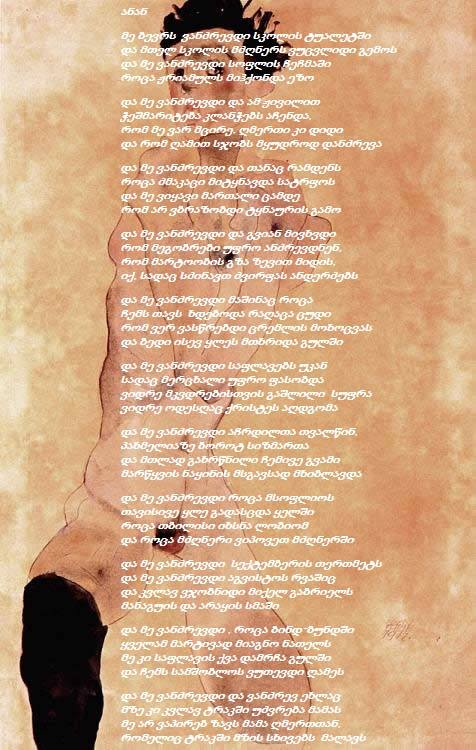 ანან
მე ბევრს ვანძრევდი სკოლის ტუალეტში
და მთელ სკოლის მძღნერს ვუცვლიდი გემოს
და მე ვანძრევდი სოფლის ჩეჩმაში
როცა ჟრიამულს მიჰქონდა ეზო
და მე ვანძრევდი და ამ ჟივილით
ჭეშმარიტება კლანჭებს აჩენდა,
რომ მე ვარ მცირე, ღმერთი კი დიდი
და რომ ღამით სჯობს მყუდროდ დანძრევა
და მე ვანძრევდი და თანაც რამდენს
როცა ძმაკაცი მიტყნავდა სატრფოს
და მე ვიყავი მართალი ცამდე
რომ არ ვბრაზობდი ტყნაურის გამო
და მე ვანძრევდი და გვიან მივხვდი
რომ მეგობრები უფრო ანძრევდნენ,
რომ მარტოობის გზა ზევით მიდის,
იქ, სადაც სძინავთ ძვირფას ანდერძებს
და მე ვანძრევდი მაშინაც როცა
ჩემს თავს ხდებოდა რაღაცა ცუდი
რომ ვერ ვასწრებდი ცრემლის მოხოცვას
და ბედი ისევ ყლეს მთხრიდა გულში
და მე ვანძრევდი საფლავებს უკან
სადაც მერცხალი უფრო ფასობდა
ვიდრე მკვდრებისთვის გაშლილი სუფრა
ვიდრე ოდესღაც ქრისტეს აღდგომა
და მე ვანძრევდი აჩრდილთა თვალწინ,
პანმელიაზე ბოროტ სიზმართა
და მთლად გახრწნილი ჩემივე გვამი
მარწყვის ნაყინის მსგავსად მხიბლავდა
და მე ვანძრევდი როცა მსოფლიოს
თავისივე ყლე გადასცდა ყელში
როცა თბილისი იხსნა ლობიომ
და როცა მძღნერი ვიპოვეთ მძღნერში
და მე ვანძრევდი სექტემბერის თერთმეტს
და მე ვანძრევდი აგვისტოს რვაშიც
და კვლავ ვჯობნიდი მიქელ გაბრიელს
მანაგუის და არაყის სმაში
და მე ვანძრევდი , როცა ბინდ-ბუნდში
ყველამ მარტივად მიაგნო ნათელს
მე კი საფლავის ქვა დამრჩა გულში
და ჩემს სამშობლოს ვუთევდი ღამეს
და მე ვანძრევდი და ვანძრევ ეხლაც
მზე კი კვლავ ტრაკში უძვრება მამას
მე არ ვაპირებ ზავს მამა ღმერთთან,
რომელიც ტრაკში მზის სხივებს მალავს